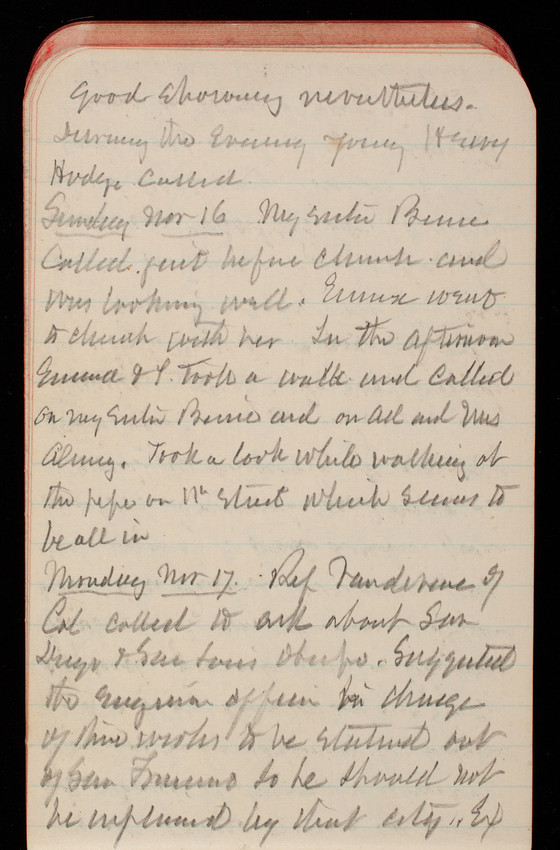 good showing nevertheless.
During the Evening young Henry
Hodge called
Sunday Nov 16 My sister Bessie
Called just before church and
was looking well. Emma went
to church with her In the afternoon
Emma & I took a walk and called
on my sister Bessie and on Ad and Mrs
Almy. Took a look while walking at
the pipe on 11th street which seems to
be all in
Monday Nov 17. Rep Vandever of
Cal called to ask about San
Diego & San Louis Obispo. Suggested
the engineer officer in charge
of works to be stationed out
of San Francisco so he should not
be influenced by that city. Ex